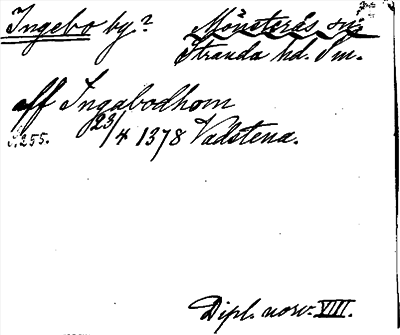 Ingebo by? Mönsterås sn
Stranda hd. Sm.
aff Ingabodhom
s. 255. 23/4 1378 Vadstena.
Dipl. norv. VIII.